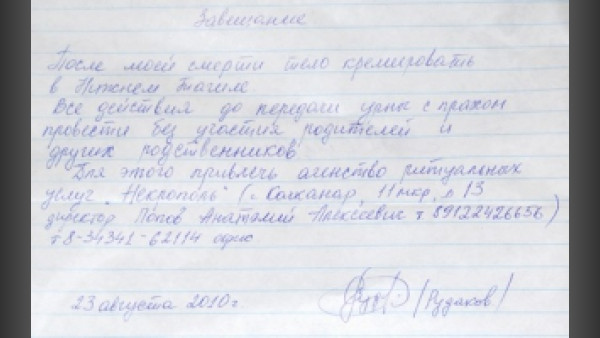 Завещание
После моей смерти тело кремировать
в Нижнем Тагиле
Все действия до передачи урны с прахом
провести без участия родителей и
других родственников
Для этого привлечь агенство ритуальных
услуг „Некрополь" (г. Качканар, 11 мкр, д 13
директор Попов Анатолий Алексеевич т 89122426656)
т 8-34341-62114 офис
23 августа 2010 г.
/Рудаков/